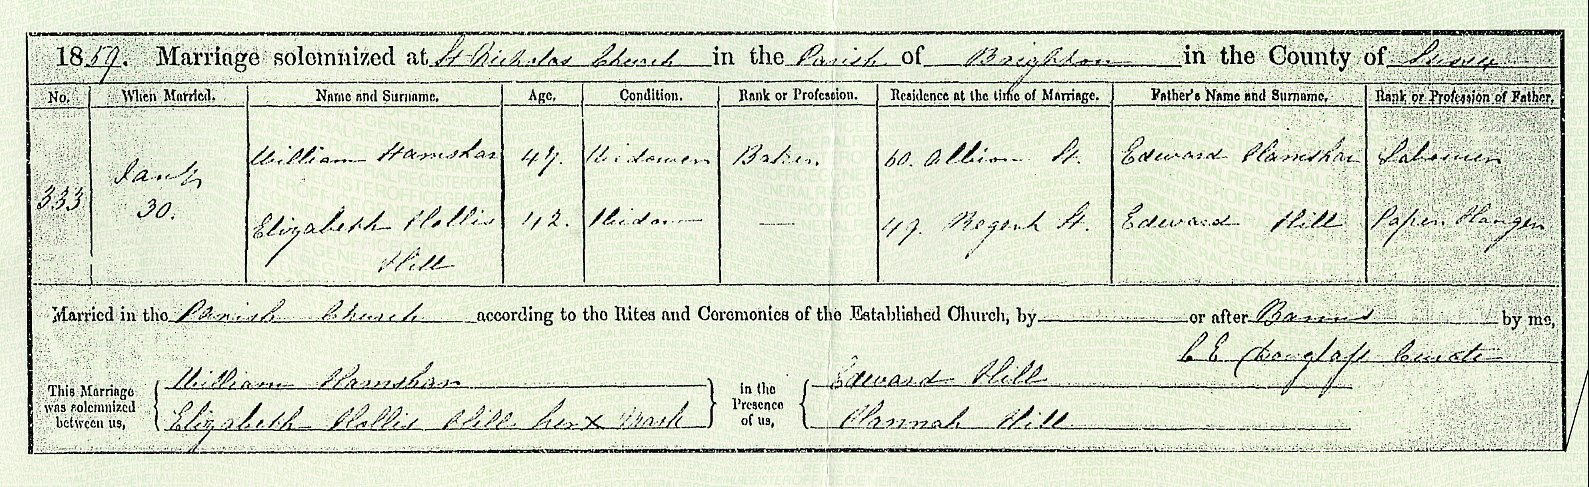 1859. Marriage solemnized at St Nicholas Church in the Parish of Brighton in the County of Sussex
No. When Married. Name and Surname. Age. Condition. Rank or Profession. Residence at the time of Marriage. Father's Name and Surname. Rank or Profession of Father.
333 Jany 30. William Hamshar 47. Widower Baker 60. Albion St. Edward Hamshar Labourer
Elizabeth Hollis 42. Widow — 49. Regent St. Edward Hill Paper Hanger
Hill
Married in the Parish Church according to the Rites and Ceremonies of the Established Church, by or after Banns by me,
C E Douglass Curate
This Marriage was solemnized between us,
William Hamshar
Elizabeth Hollis Hill her x Mark
in the Presence of us,
Edward Hill
Hannah Hill